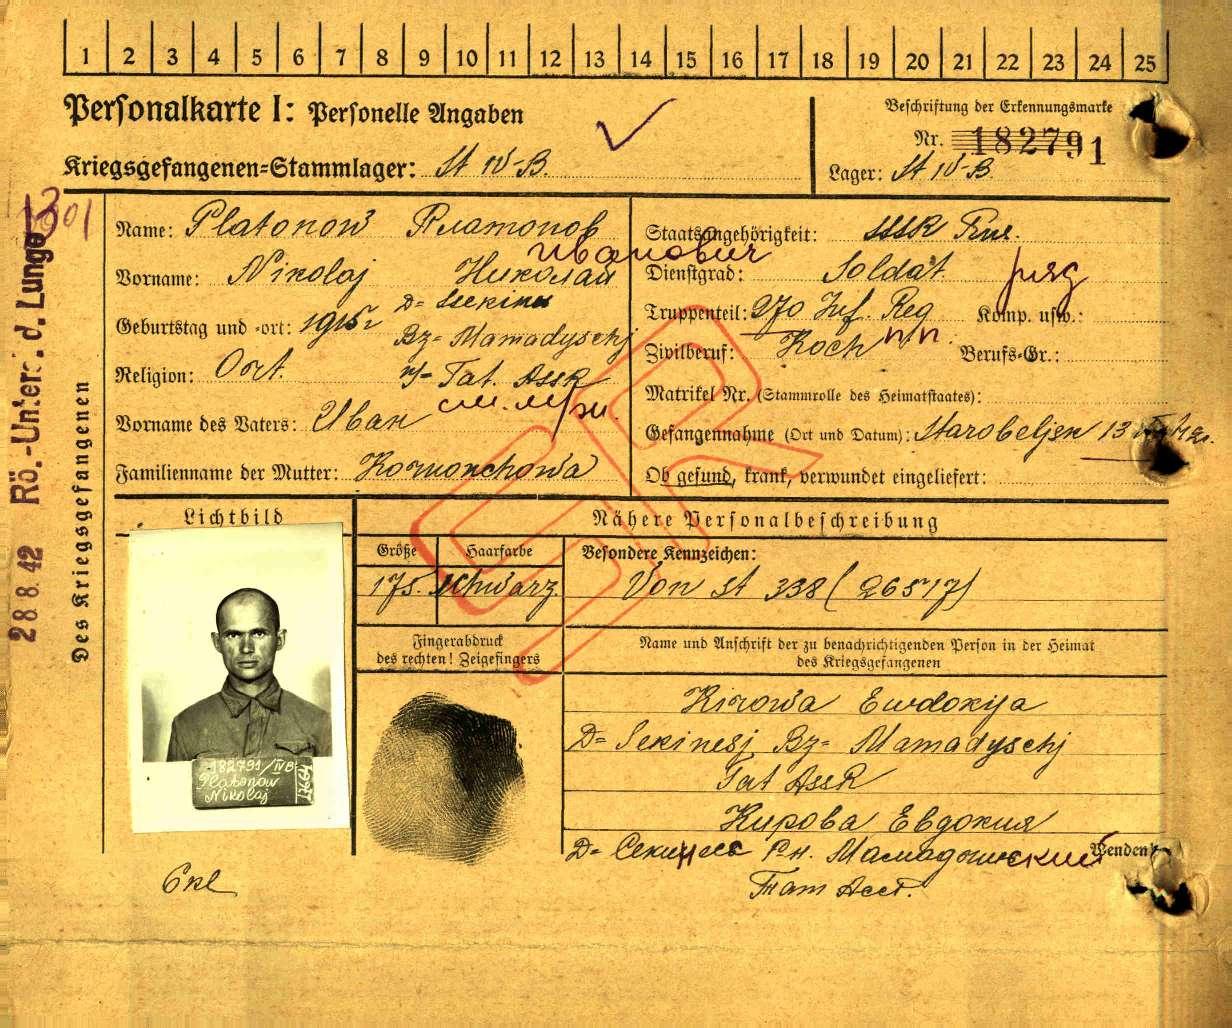 1 2 3 4 5 6 7 8 9 10 11 12 13 14 15 16 17 18 19 20 21 22 23 24 25
Personalkarte I: Personelle Angaben
Beschriftung der Erkennungsmarke
Nr. 182791
Kriegsgefangenen=Stammlager: St IV-B.
Lager: St IV-B.
Name: Platonow Платонов
Staatsangehörigkeit:
Иванович
Vorname: Nikolaj Николай
Dienstgrad: Soldat.
Geburtstag und -ort: 1915
Bz- Mamadyschj
Truppenteil: 270 Inf. Reg Komp. usw.:
Zivilberuf: Koch Berufs-Gr.:
Religion: Ort.
Tat. ASSR
Matrikel Nr. (Stammrolle des Heimatstaates):
Vorname des Vaters: Iban
Gefangennahme (Ort und Datum): Starobeljsk 13
Familienname der Mutter:
Ob gesund, krank, verwundet eingeliefert:
Des Kriegsgefangenen
28 8. 42 Rö.-Unters. d. Lunge
Lichtbild
Nähere Personalbeschreibung
Größe Haarfarbe Besondere Kennzeichen:
175. schwarz Von St 338 (26517)
Fingerabdruck
des rechten! Zeigefingers
Name und Anschrift der zu benachrichtigenden Person in der Heimat
des Kriegsgefangenen
Kirowa Ewdokija
D= Sekinesj Bz= Mamadyschj
Tat ASSR
Кирова Евдокия
Д= Р-н. Мамадышский
Wenden!
Тат Асср.
182791/IVB
Platonow
Nikolaj